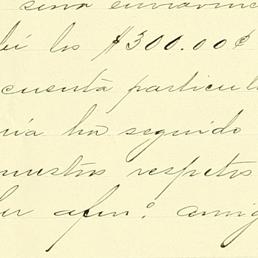 bí los $300.00¢
cuenta particul
ría ha seguido
nuestros respetos
afmº. amig